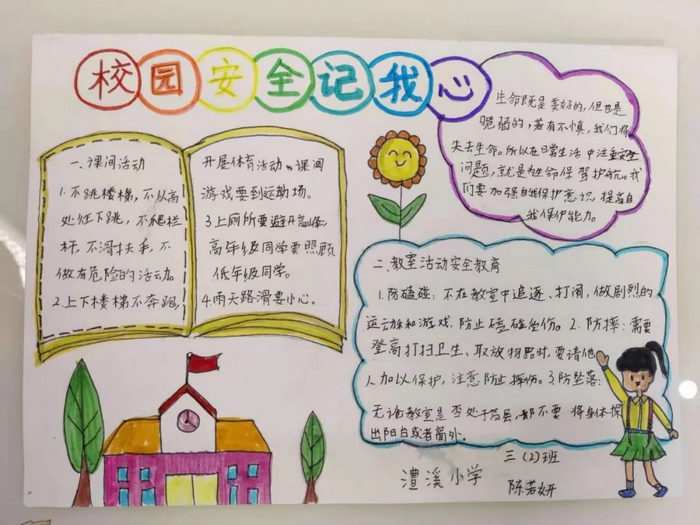 校园安全记我心
一、课间活动
1.不跳楼梯，不从高
处往下跳，不爬栏
杆，不滑扶手，不
做有危险的活动。
2.上下楼梯不奔跑，
开展体育活动，课间
游戏要到运动场。
3.上厕所要避开高峰，
高年级同学要照顾
低年级同学。
4.雨天路滑要小心。
生命既是美好的，但也是
脆弱的，若有不慎，我们将
失去生命。所以在日常生活中注重安全
问题，就是为生命保驾护航。我
们要加强自我保护意识，提高自
我保护能力。
二、教室活动安全教育
1.防磕碰：不在教室中追逐、打闹，做剧烈的
运动和游戏，防止磕碰坐伤。2.防摔：需要
登高打扫卫生、取放物品时，要请他
人加以保护，注意防止摔伤。3.防坠落：
无论教室是否处于高层，都不要将身体探
出阳台或者窗外。
三（2）班
澧溪小学
陈若妍